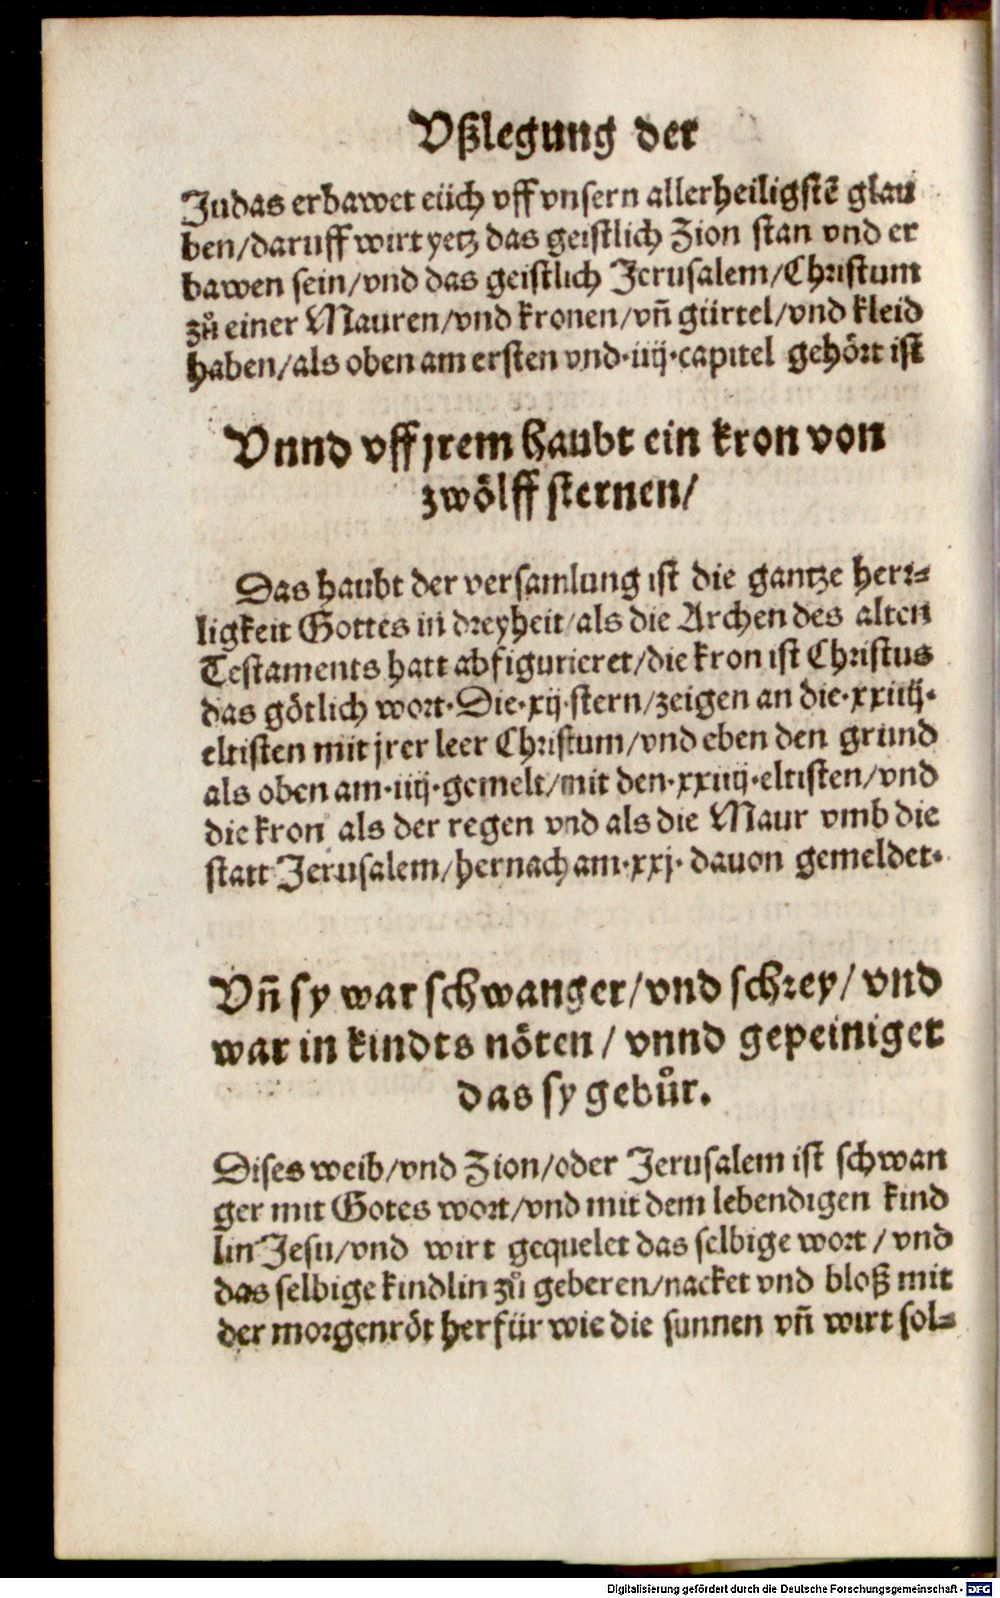 Vßlegung der
Judas erbawet eüch vff vnsern allerheiligstē glau
ben/daruff wirt yetz das geistlich Zion stan vnd er
bawen sein/vnd das geistlich Jerusalem/Christum
zů einer Mauren/vnd kronen/vñ gürtel/vnd kleid
haben/als oben am ersten vnd·iiij·capitel gehört ist
Vnnd vff jrem haubt ein kron von
zwölff sternen/
Das haubt der versamlung ist die gantze herr⸗
ligkeit Gottes in dreyheit/als die Archen des alten
Testaments hatt abfigurieret/die kron ist Christus
das götlich wort·Die·xij·stern/zeigen an die·xxiiij·
eltisten mit jrer leer Christum/vnd eben den grund
als oben am·iiij·gemelt/mit den·xxiiij·eltisten/vnd
die kron als der regen vnd als die Maur vmb die
statt Jerusalem/hernach am·xxj· dauon gemeldet·
Vñ sy war schwanger/vnd schrey/ vnd
war in kindts nöten / vnnd gepeiniget
das sy gebůr.
Dises weib/vnd Zion/oder Jerusalem ist schwan
ger mit Gotes wort/vnd mit dem lebendigen kind
lin Jesu/vnd wirt gequelet das selbige wort / vnd
das selbige kindlin zů geberen/nacket vnd bloß mit
der morgenröt herfür wie die sunnen vñ wirt sol⸗
Digitalisierung gefördert durch die Deutsche Forschungsgemeinschaft - DFG